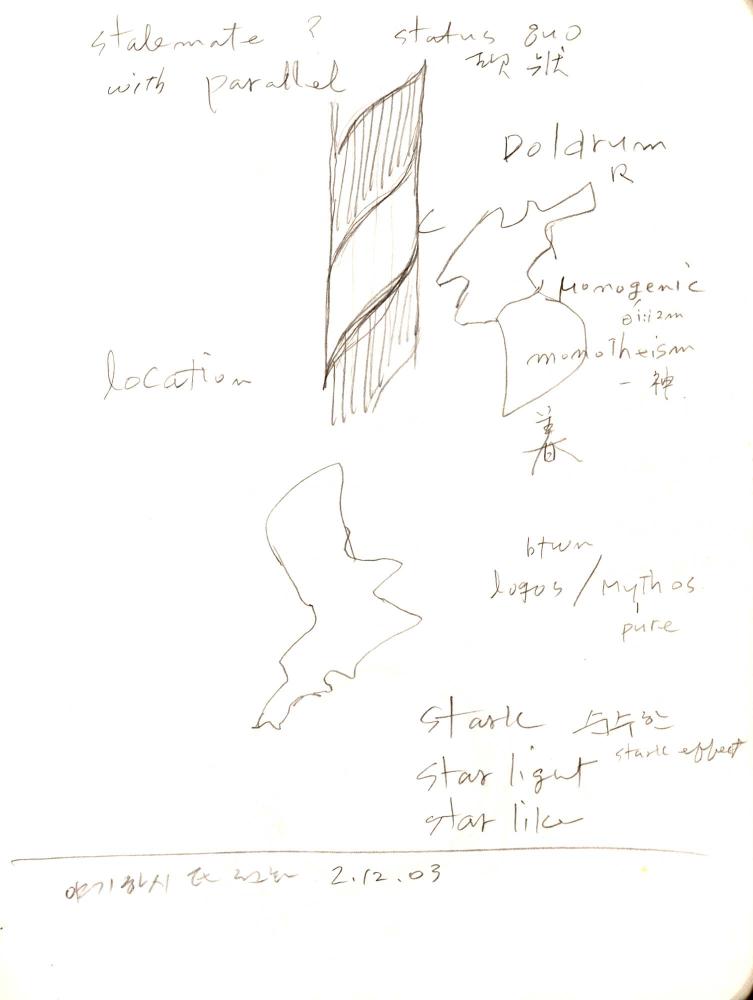 stalemate ? status quo
with parallel 現狀
Doldrum
R
C
Monogenic
monotheism
一神
location
btwn
logos / Mythos
pure
Stark 순수한
stark effect
Star light
star like
2.12.03